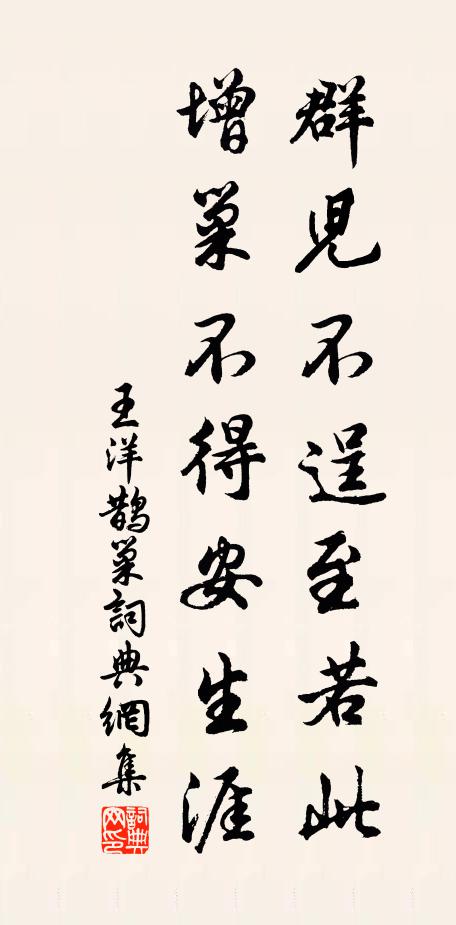 群児不逞至若此
增巢不得安生涯
王洋鵲巢詞典網集
詞典網印